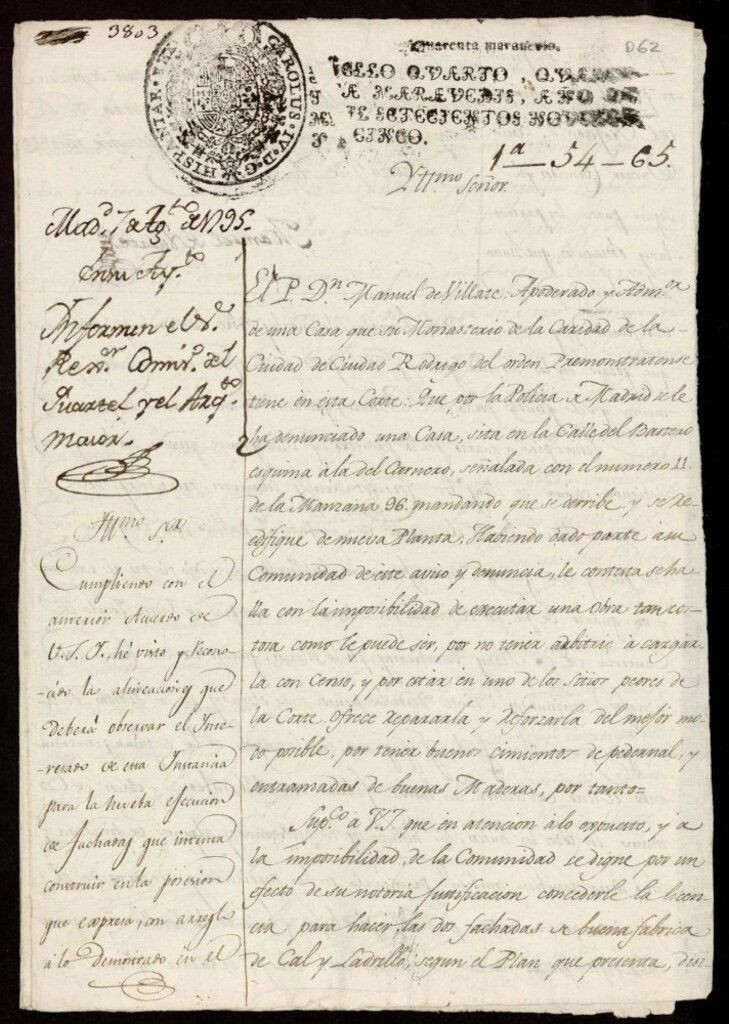 3803
D62
quarenta maravedis.
CAROLUS·IV·D·G· HISPANIAR·REX
SELLO QVARTO, QVAREN
TA MARAVEDIS, AÑO DE
MIL SETECIENTOS NOVENTA
Y CINCO.
1ª—54—65.
Yttmo Señor.
Mad.d 7 de Ag.to de 1795.
En su Ay.to
Informen el S.r
Rex.or Comis.o del
Quartel y el Arq.to
maior.
Ittmo. Sor
Cumpliendo con el
anterior Acuerdo de
V.S.I., hé visto y recono-
-cido la alineacion que
deberá observar el Inte-
-resado de esta Instancia
para la nueba ejecucion
de fachadas que intenta
construir en la posesion
que expresa, con arreglo
á lo demostrado en el
El P. Dn. Manuel de Villate, Apoderado y Adm.or
de una Casa que su Monasterio de la Caridad de la
Ciudad de Ciudad Rodrigo del orden Premonstratense
tiene en esta Corte: Que por la Policia de Madrid se le
ha denunciado una Casa, sita en la Calle del Bastero
esquina á la del Carnero, señalada con el numero 11
de la Manzana 96. mandando que se derribe, y se Re-
edifique de nueva Planta; Habiendo dado parte á su
Comunidad de este aviso y denuncia, le contesta se ha-
lla con la imposibilidad de executar una Obra tan cos-
tosa como le puede ser, por no tener arbitrio á cargar-
la con Censo, y por estar en uno de los sitios peores de
la Corte ofrece repararla y reforzarla del mejor mo-
do posible, por tener buenos cimientos de pedernal, y
entramadas de buenas Maderas, por tanto=
Sup.co a V.I. que en atencion á lo expuesto, y a
la imposibilidad de la Comunidad se digne por un
efecto de su notoria justificacion concederle la licen-
cia para hacer las dos fachadas de buena fabrica
de Cal y Ladrillo, segun el Plan que presenta,